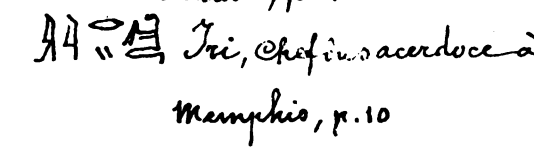 Iri, Chef du sacerdoce à
Memphis, p. 10